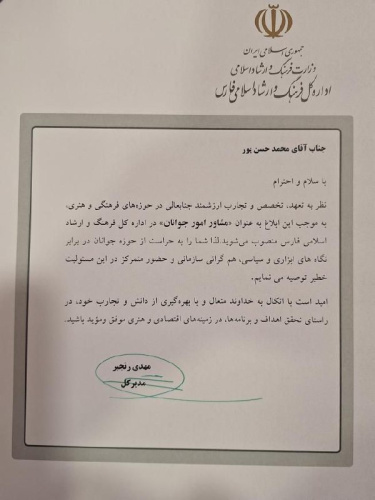 جمهوری اسلامی ایران
وزارت فرهنگ و ارشاد اسلامی
اداره کل فرهنگ و ارشاد اسلامی فارس
جناب آقای محمد حسن پور
با سلام و احترام
نظر به تعهد، تخصص و تجارب ارزشمند جنابعالی در حوزه‌های فرهنگی و هنری،
به موجب این ابلاغ به عنوان «مشاور امور جوانان» در اداره کل فرهنگ و ارشاد
اسلامی فارس منصوب می‌شوید.لذا شما را به حراست از حوزه جوانان در برابر
نگاه های ابزاری و سیاسی، هم گرائی سازمانی و حضور متمرکز در این مسئولیت
خطیر توصیه می نمایم.
امید است با اتکال به خداوند متعال و با بهره‌گیری از دانش و تجارب خود، در
راستای تحقق اهداف و برنامه‌ها، در زمینه‌های اقتصادی و هنری موفق ومؤید باشید.
مهدی رنجبر
مدیرکل